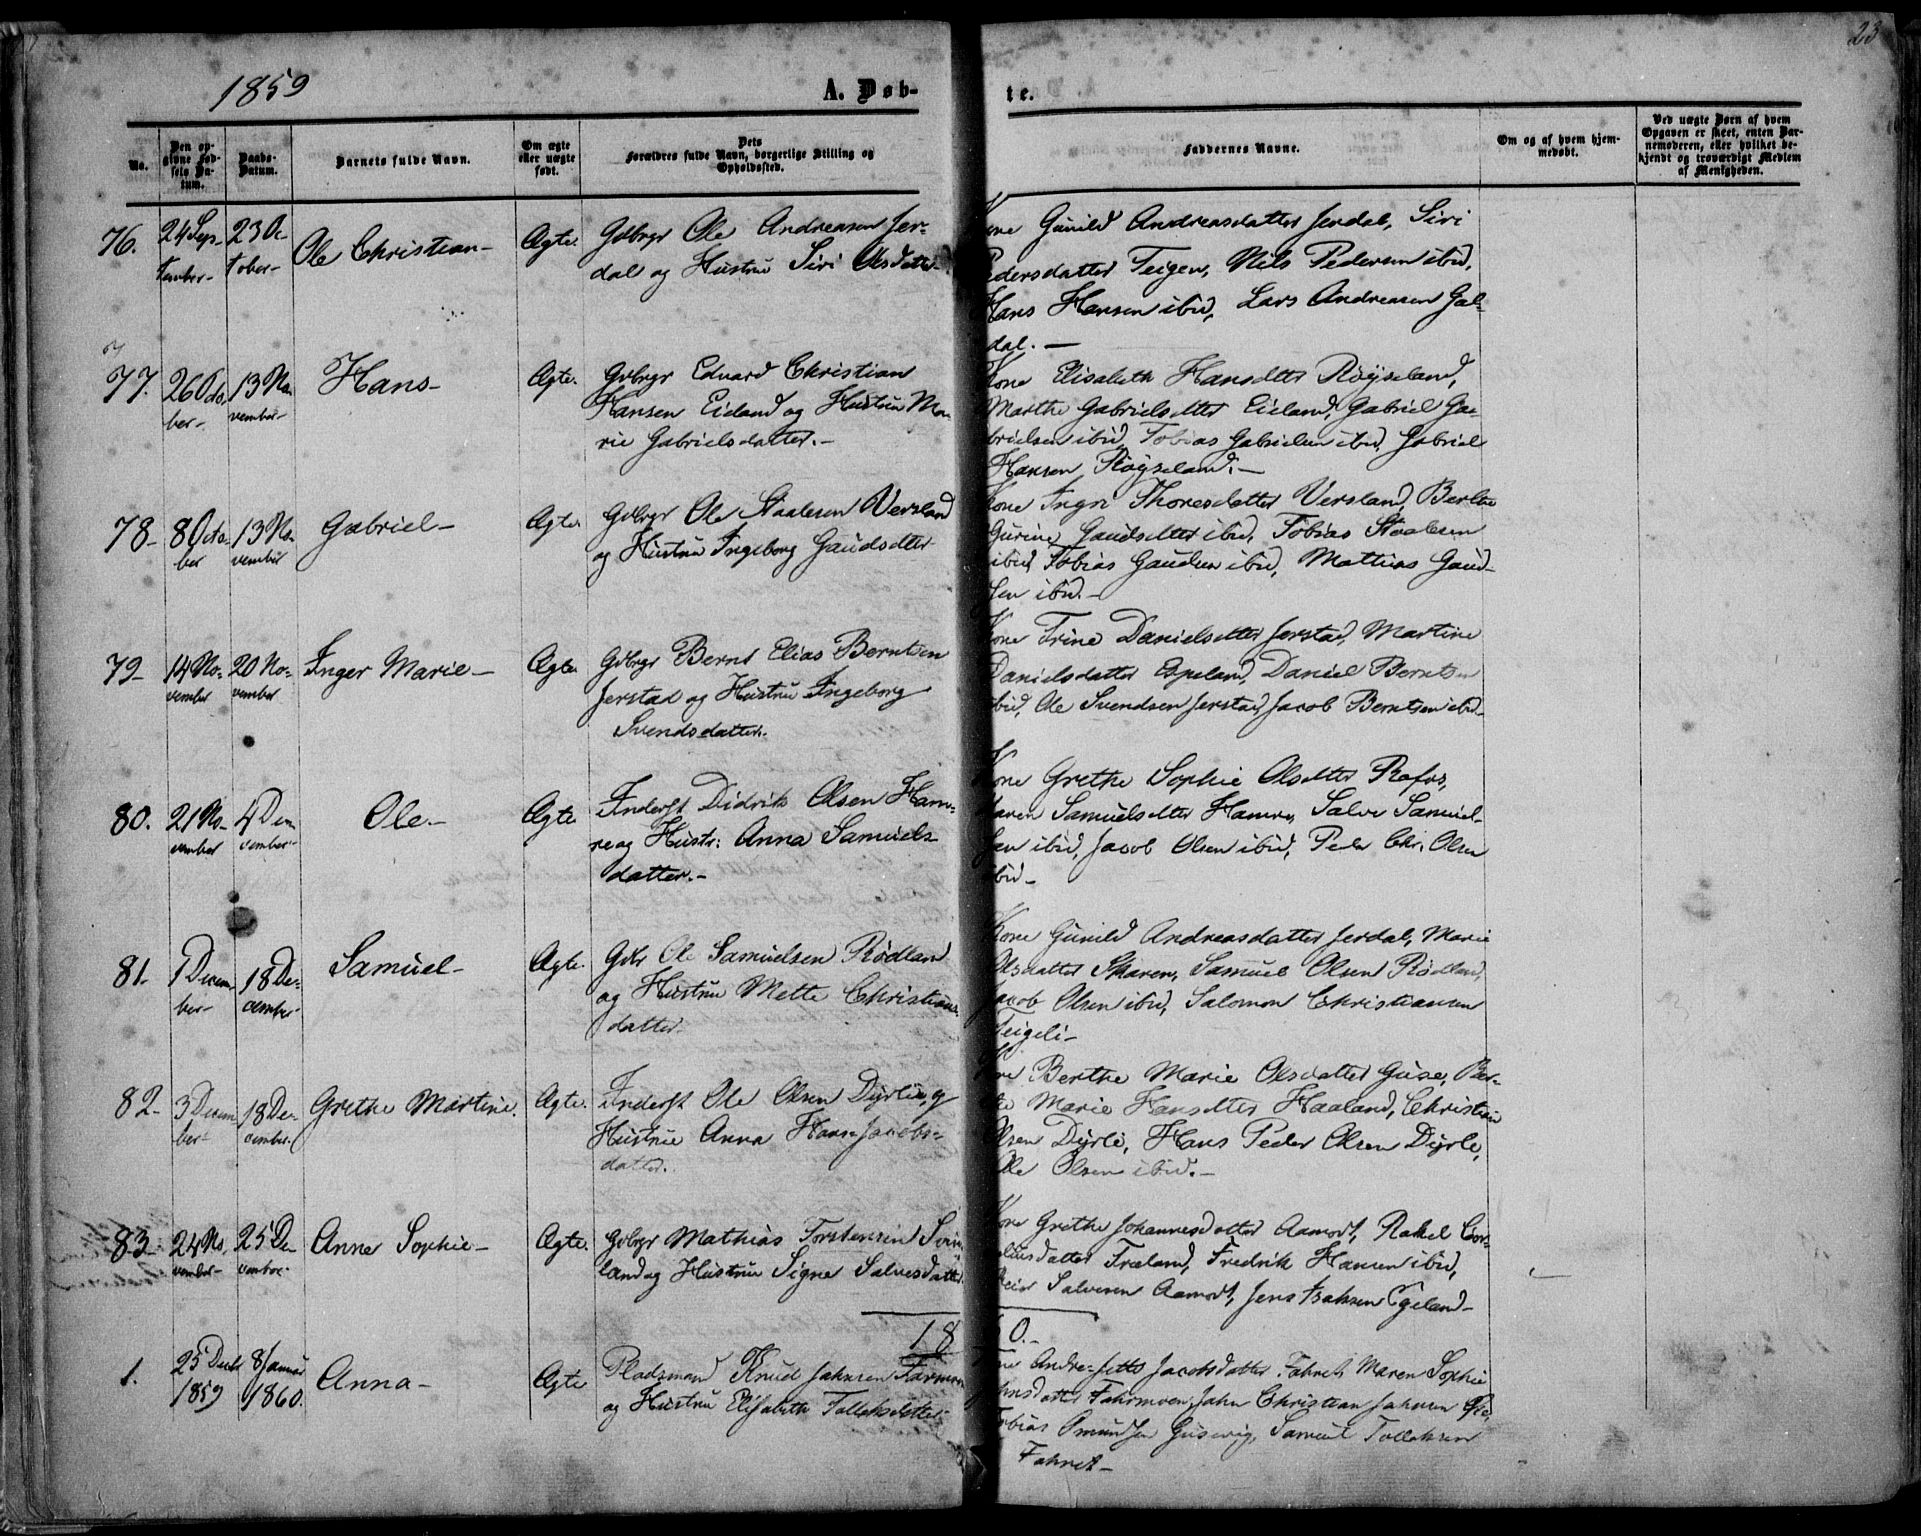 23
1859
A. Døb-
te.
No.
Den op-
givne Fød-
sels Da-
tum.
Daabs-
Datum.
Barnets fulde Navn.
Om ægte
eller uægte
født.
Dets
Forældres fulde Navn, borgerlige Stilling og
Opholdssted.
Faddernes Navne.
Om og af hvem hjem-
medøbt.
Ved uægte Børn af hvem
Opgaven er skeet, enten Bar-
nemoderen, eller hvilket be-
kjendt og troværdigt Medlem
af Menigheden.
76.
24 Sep-
tember-
23 Oc-
tober-
Ole Christian-
Ægte.
Gdbrgr Ole Andreasen Jer-
dal og Hustru Siri Olsdatter
Kone Gunild Andreasdatter Jerdal, Siri
Pedersdatter Teigen, Nils Pedersen ibid,
Hans Hansen ibid, Lars Andreasen Gal-
dal.-
77.
26 Octo-
ber-
13 No-
vember-
Hans-
Ægte.
Gdbrgr Eduard Christian
Hansen Eieland og Hustru Ma-
rie Gabrielsdatter.-
Kone Elisabeth Hansdtter Røyseland,
Marthe Gabrielsdtter Eieland, Gabriel Ga-
brielsen ibid, Tobias Gabrielsen ibid, Gabriel
Hansen Røyseland.-
78-
8 Octo-
ber
13 No-
vember
Gabriel-
Ægte.
Gdbrgr Ole Staalesen Versland
og Hustru Ingeborg Gaudsdtter
Kone Ingr Thoresdatter Versland, Berthe
Gurine Gaudsdtter ibid, Tobias Staalesen
ibid, Tobias Gaudsen ibid, Mathias Gaud-
sen ibid.-
79-
14 No-
vember
20 No-
vember
Inger Marie-
Ægte
Gdbrgr Bernt Elias Berntsen
Jerstad og Hustru Ingeborg
Svendsdatter.
Kone Trine Danielsdtter Jerstad, Martine
Danielsdatter Espeland, Daniel Berntsen
ibid, Ole Svendsen Jerstad, Jacob Berntsen ibid-
80.
21 No-
vember
4 De-
cember-
Ole-
Ægte
Inderst Didrik Olsen Ham-
re og Hustr: Anna Samuels-
datter.-
Kone Grethe Sophie Olsdtter Rafos,
Maren Samuelsdtter Hamre, Salve Samuel-
sen ibid, Jacob Olsen ibid, Peder Chr. Olsen
ibid-
81-
1 Decem-
ber-
18 De-
cember-
Samuel-
Ægte.
Gdbr Ole Samuelsen Rødland
og Hustru Mette Christians-
datter.
Kone Gunild Andreasdatter Jerdal, Marie
Olsdatter Skaren, Samuel Olsen Rødland,
Jacob Olsen ibid, Salomon Christiansen
Teigeli-
82-
3 Decem-
ber-
18 De-
cember.
Grethe Martine.
Ægte.
Inderst Ole Olsen Dyrlie, og
Hustrue Anna Hans-Jacobs-
datter.
Kone Berthe Marie Olsdatter Guse, Ber-
the Marie Hansdtter Haaland, Christian
Olsen Dyrli, Hans Peder Olsen Dyrli,
Ole Olsen ibid.-
83-
24 No-
vember-
25 De-
cember-
Anne Sophie-
Ægte.
Gdbrgr Mathias Torstensen
land og Hustru Signe Salvesdatter
Kone Grethe Johannesdatter Aamodt, Rakel Cor-
neliusdatter Træland, Fredrik Hansen ibid,
Salvesen Aamodt, Jens Isaksen Egeland-
1860.-
1.
25 Decbr
1859
8 Januar
1860.
Anna-
Ægte
Pladsmand Knud Jahnsen
og Hustru Elisabeth Tollaksdatter.
Kone Andre-Jette Jacobsdatter Fahret, Maren Sophie
Jahnsdatter Fahrmoen, Jahn Christian Jahnsen
Tobias Omundsen Gusevig, Samuel Tollaksen
Fahret-